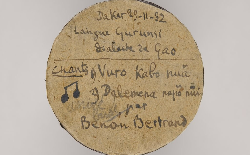 Dakar 29-11-52
Langue Gurunsi
Dialecte de Gao
Chants Vuro Kabo nuū
2) Dalemena najō nuū
par
Benon Bertrand